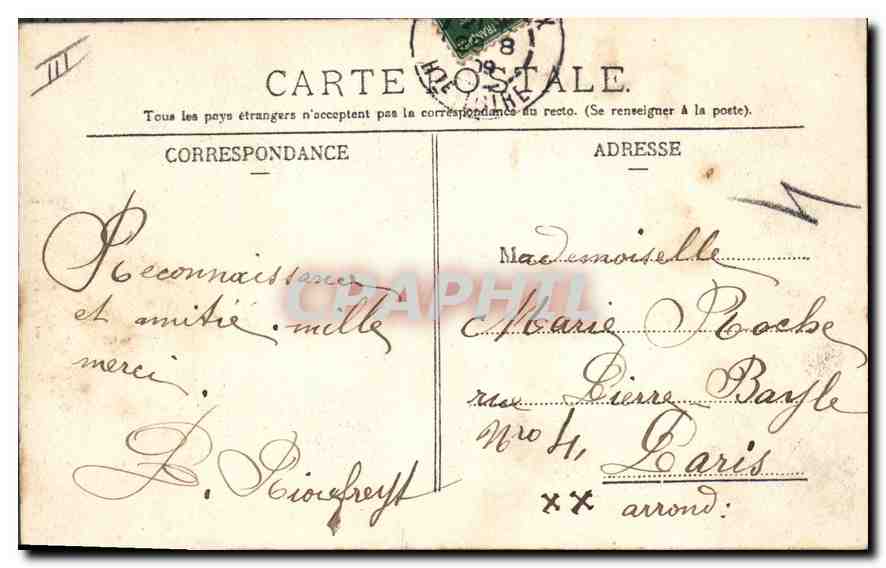 III
8
09
HTE LOIRE
CARTE POSTALE.
Tous les pays étrangers n'acceptent pas la correspondance au recto. (Se renseigner à la poste).
CORRESPONDANCE
Reconnaissance
et amitié. mille
merci.
P. Rioufreyt
ADRESSE
Mademoiselle
Marie Roche
rue Pierre Bayle
Nro 4, Paris
XX arrond:
CPAPHIL